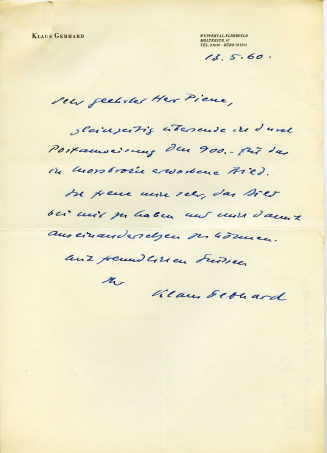 KLAUS GEBHARD
WUPPERTAL-ELBERFELD
MOLTKESTR.
TEL.
18.5.60.
Sehr geehrter Herr Piene,
gleichzeitig übersende ich durch
Postanweisung DM 900.- für das
in Morsbroich erworbene Bild.
Ich freue mich sehr, das Bild
bei mir zu haben und mich damit
auseinandersetzen zu können.
Mit freundlichen Grüßen
Ihr
Klaus Gebhard